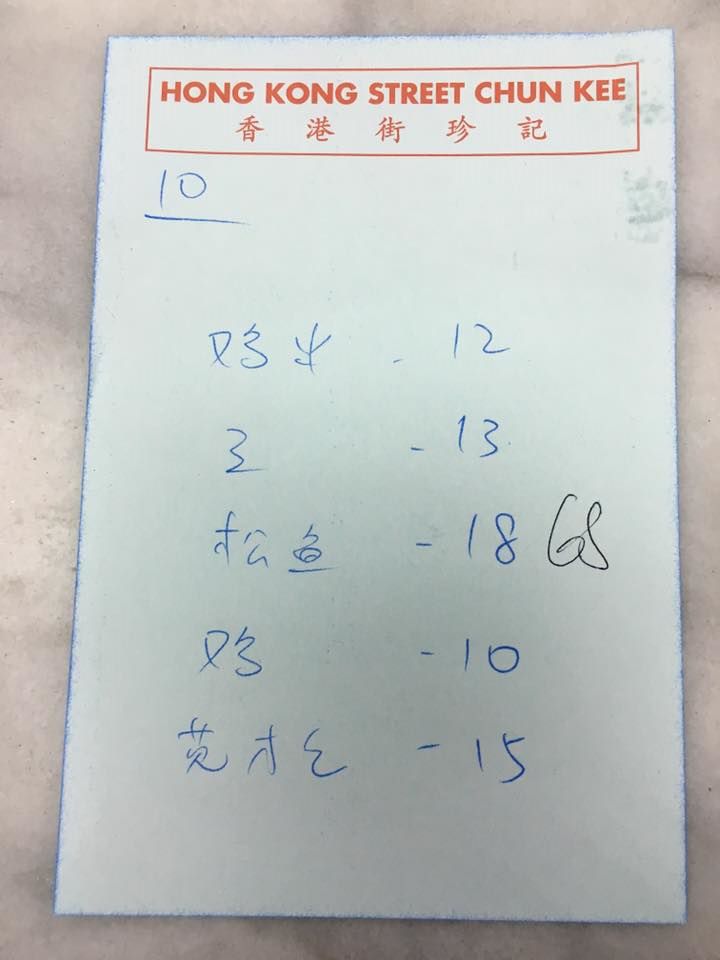 HONG KONG STREET CHUN KEE
香港街珍記
10
鸡 - 12
- 13
松鱼 - 18 68
鸡 - 10
苋才 - 15